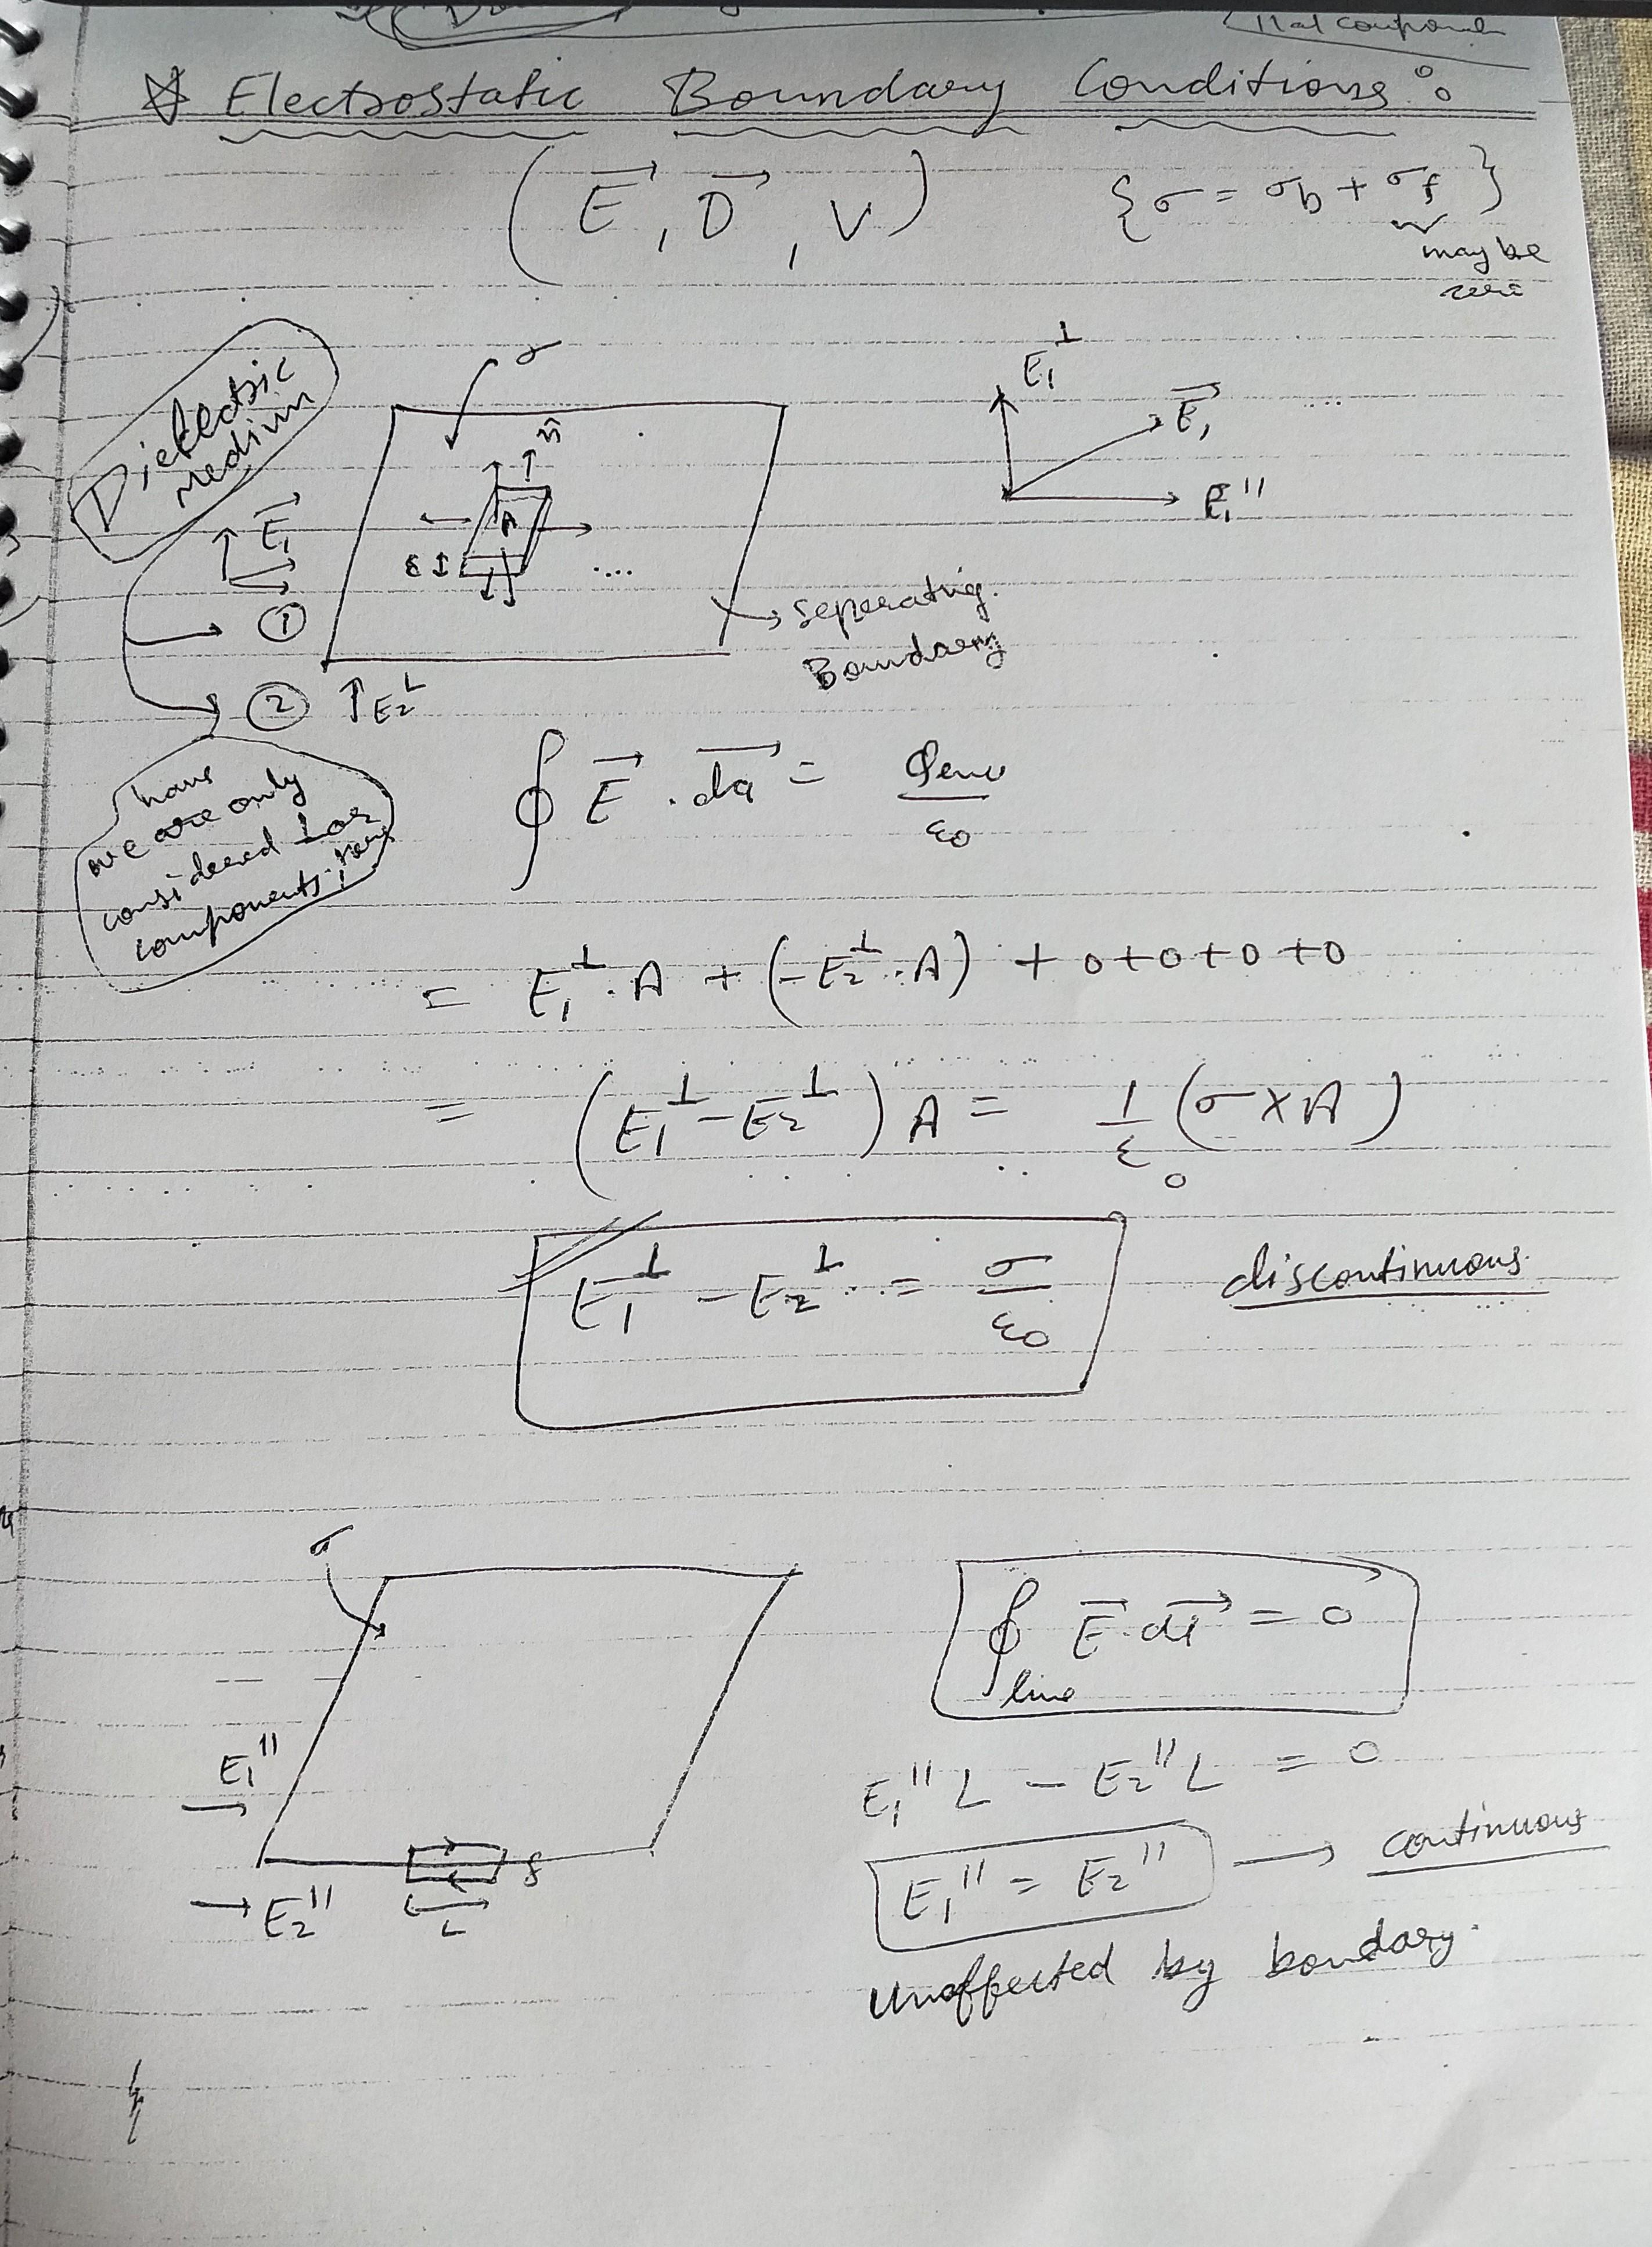 nal component
☆ Electrostatic Boundary Conditions :
( E⃗ , D⃗ , V ) { σ = σb + σf }
may be
zero
Dielectric
Medium
σ
n̂
A
ε
E₁⃗
①
② E₂^⊥
E₁^⊥
E₁⃗
E₁^∥
→ seperating
Boundary
have
we are only
considered ⊥ar
components here
∮ E⃗ . da⃗ = Qenc / ε0
= E₁^⊥ . A + (-E₂^⊥ . A) + 0 + 0 + 0 + 0
= (E₁^⊥ - E₂^⊥) A = 1/ε0 (σ × A)
E₁^⊥ - E₂^⊥ = σ/ε0 discontinuous
σ
E₁^∥
→ E₂^∥
L
∮ E⃗ . dl⃗ = 0
line
E₁^∥ L - E₂^∥ L = 0
E₁^∥ = E₂^∥ → continuous
Unaffected by boundary.